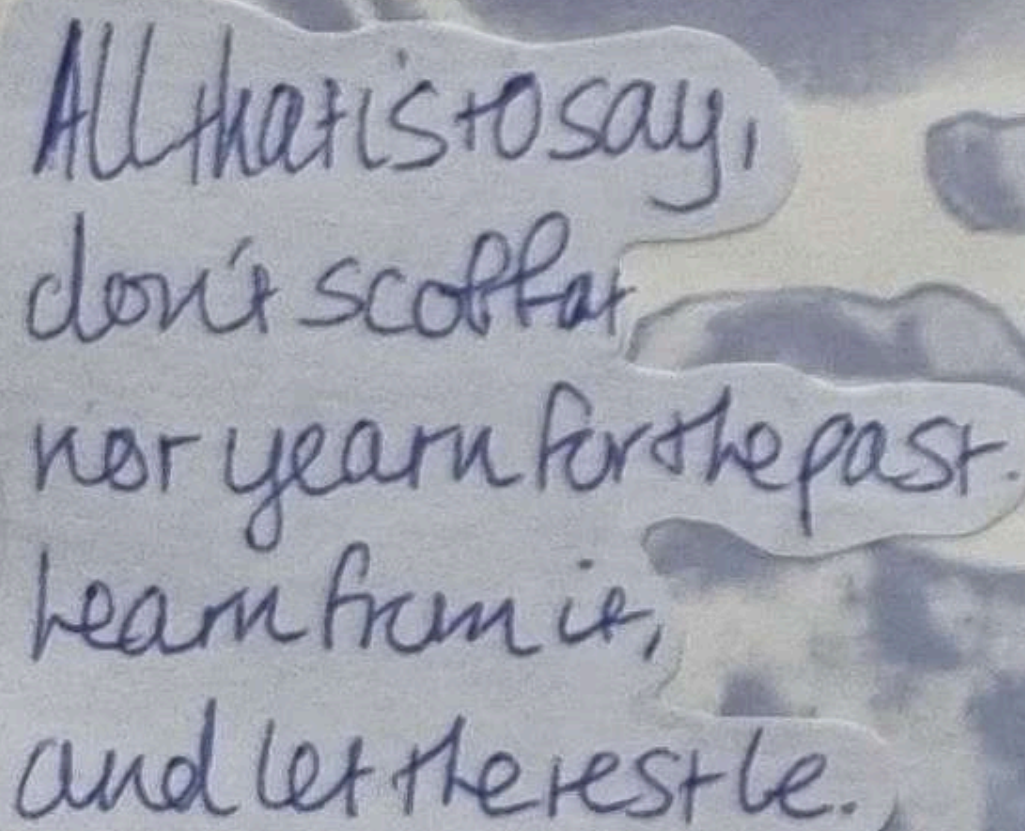 All that is to say,
don't scoff at
nor yearn for the past.
Learn from it,
and let the rest be.